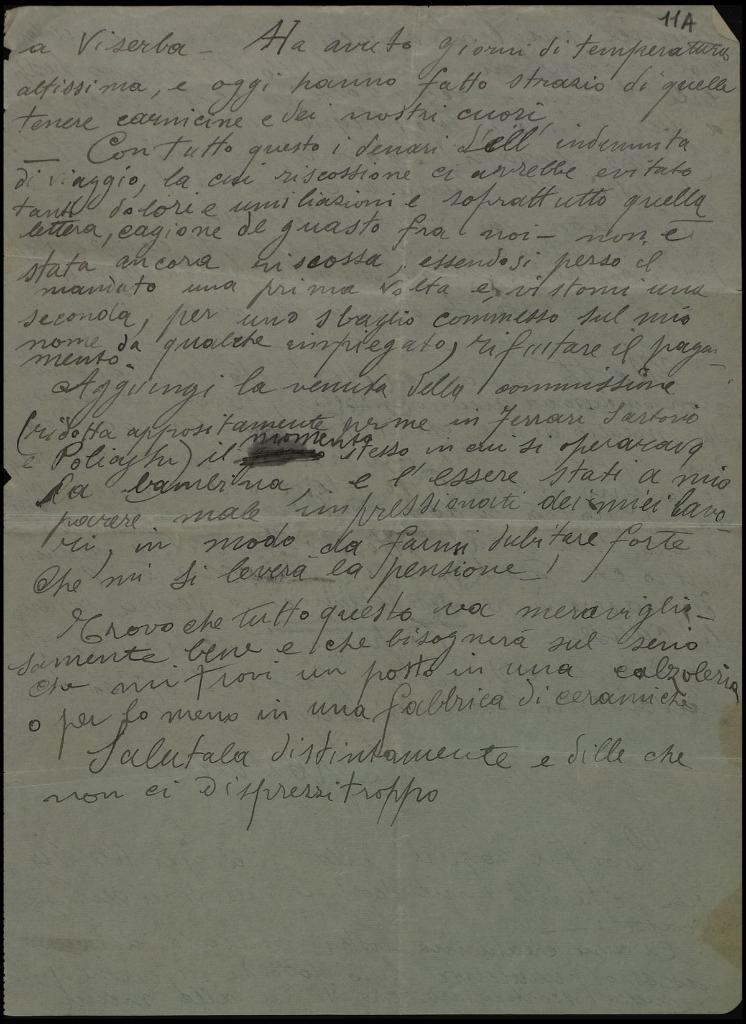 11A
a Viserba - Ha avuto giorni di temperatura
altissima, e oggi hanno fatto strazio di quella
tenere carnicine e dei nostri cuori,
Con tutto questo i denari dell' indennità
di viaggio, la cui riscossione ci avrebbe evitato
tanti dolori e umiliazioni e soprattutto quella
lettera, cagione del guasto fra noi - non è
stata ancora riscossa, essendosi perso il
mandato una prima volta e, vistomi una
seconda, per uno sbaglio commesso sul mio
nome da qualche impiegato, rifiutare il paga-
mento.
Aggiungi la venuta della commissione
(ridotta appositamente per me in Ferrari Sartorio
e Poliaghi) il momento stesso in cui si operarava
la bambina, e l'essere stati a mio
parere male impressionati dei miei lavo-
ri, in modo da farmi dubitare forte
che mi si leverà la pensione!
Trovo che tutto questo va meraviglio-
samente bene e che bisognerà sul serio
che mi trovi un posto in una calzoleria
o per lo meno in una fabbrica di ceramiche
Salutala distintamente e dille che
non ci disprezzi troppo